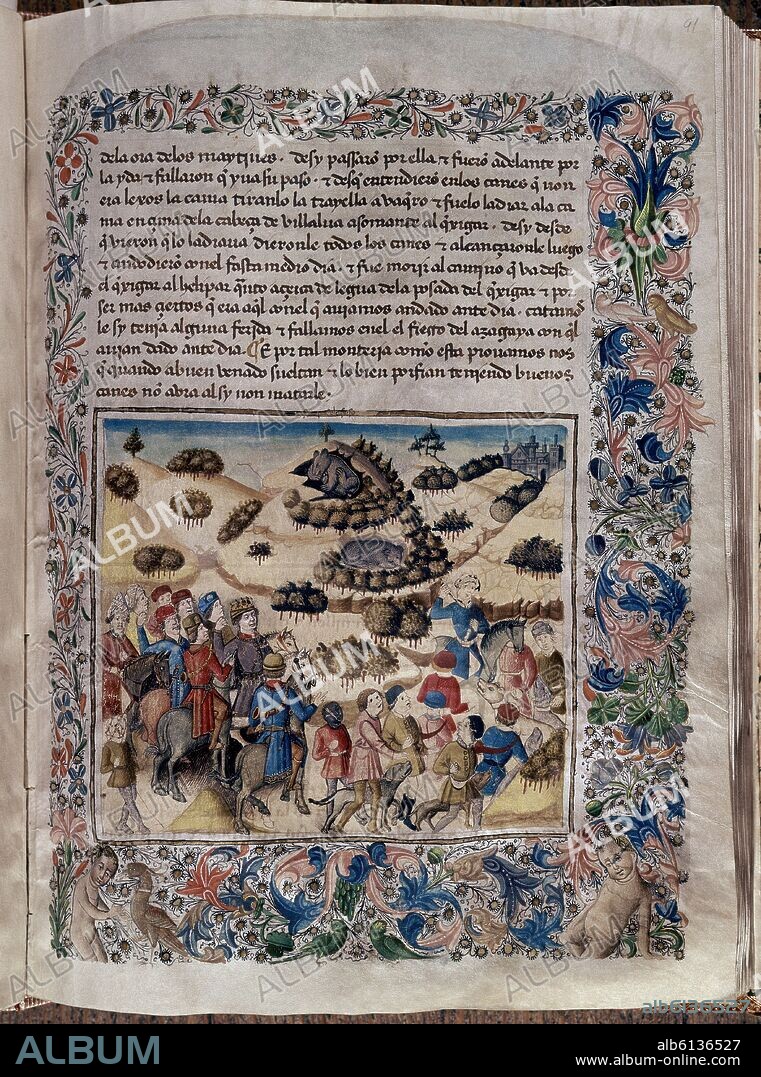 91
dela ora delos maytines. desy passarõ por ella & fuerõ adelante por
la yda & fallaron q̃ yua su paso. & desq̃ entendierõ enlos canes q̃ non
era lexos la cama tiraron la trayella a vaq̃ro & fuelo ladrar ala ca
ma en çima dela cabeça de villalua asomante al q̃xigar. desy desde
q̃ vieron q̃ lo ladraua dieronle todos los canes & alcançarõnle luego
& andodierõ conel fasta medio dia. & fue morir al camino q̃ va desde
el q̃xigar al helipar q̃nto açerca de legua dela posada del q̃xigar & por
ser mas çiertos q̃ era aq̃l conel q̃ auiamos andado ante dia. catamos
le sy tenia alguna ferida & fallamos enel el fierro del azagaya con q̃l
auian dado ante dia. E por tal monteria commo esta prouamos nos
q̃ quando a buen venado sueltan & lo bien porfian teniendo buenos
canes nõ abra al sy non matarle.
ALBUM
alb6136527
ALBUM
alb6136527
www.album-online.com